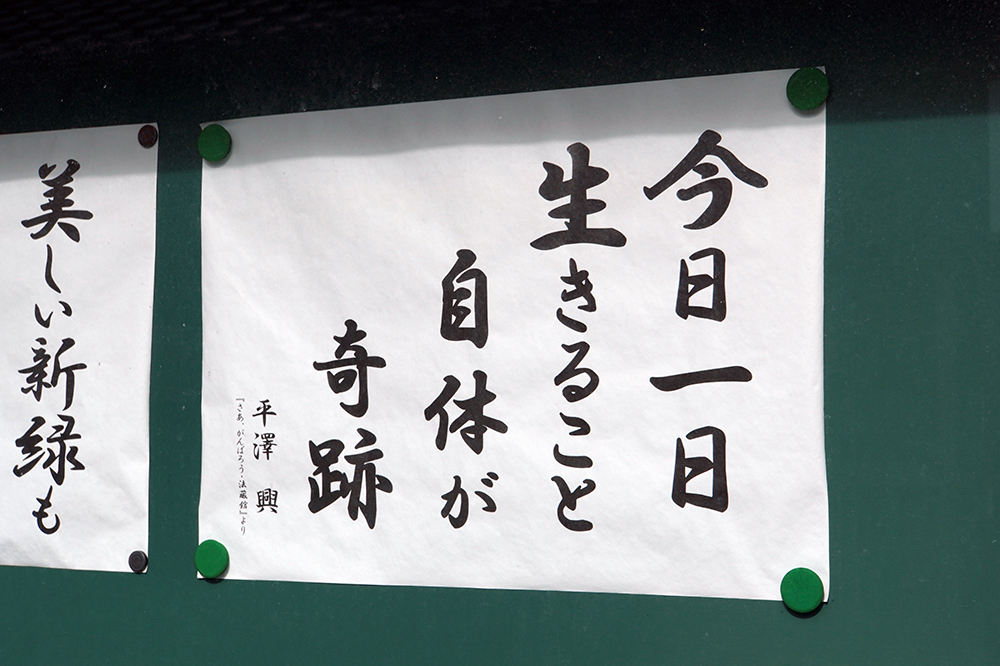 今日一日
生きること
自体が
奇跡
平澤 興
『さあ、がんばろう・法蔵館』より
美しい新緑も